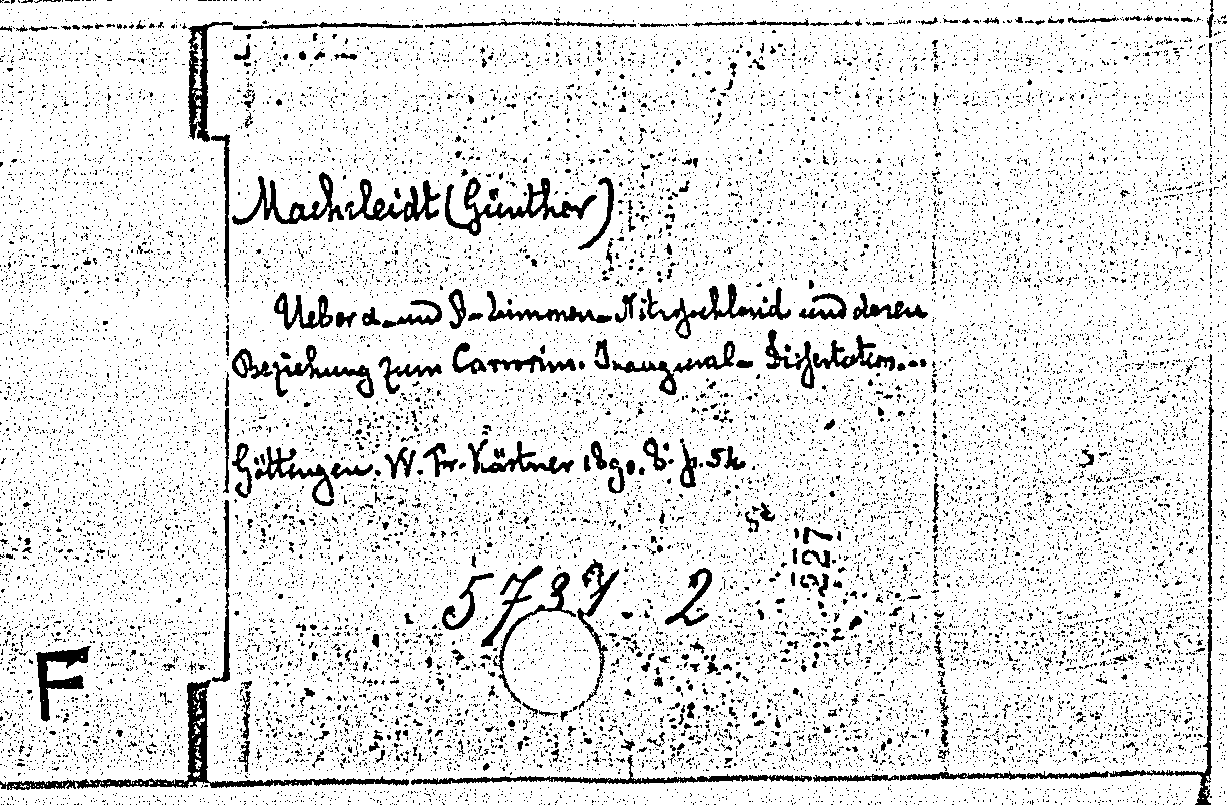 Macheleidt (Günther)
Ueber α- und β- Limonen- Nitrosochlorid und deren
Beziehung zum Carvoxim. Inaugural- Dissertation...
Göttingen. W. Fr. Kästner 1890. 8°. p. 54
54
227
2
F